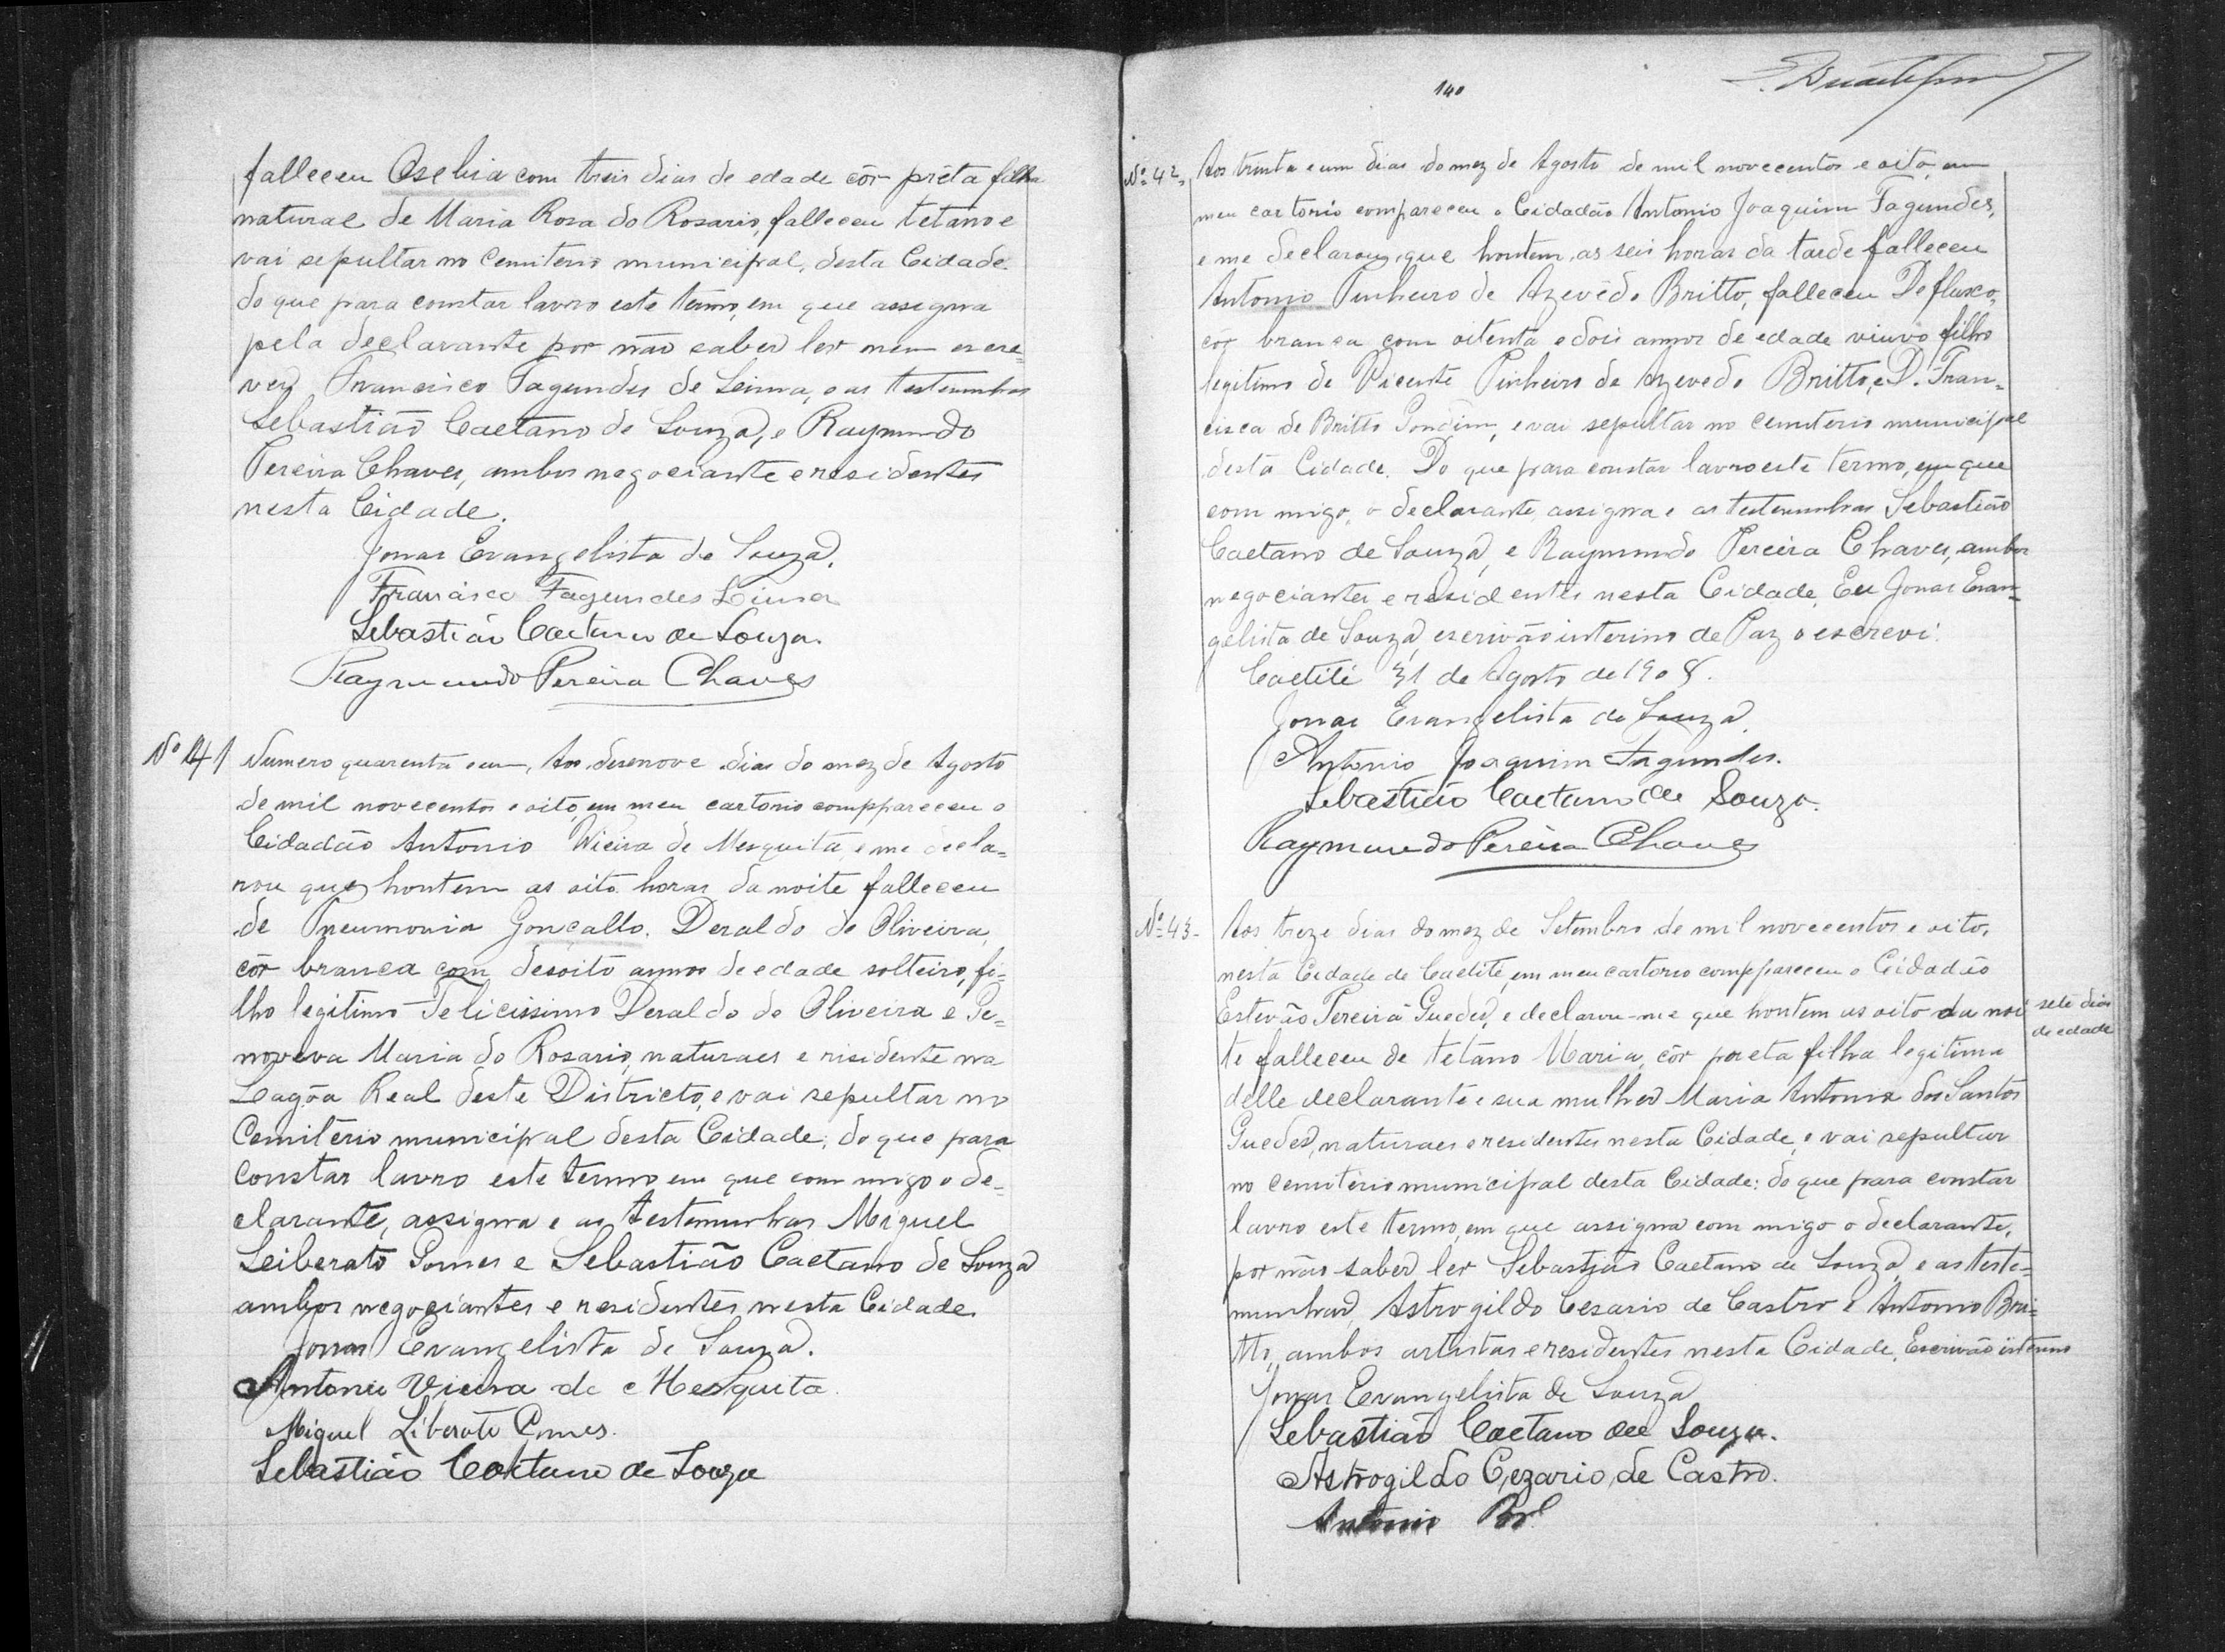 falleceu Osebia com treis dias de edade côr prêta filha
natural de Maria Rosa do Rosario, falleceu tetano e
vai sepultar no Cemiterio municipal, desta Cidade.
do que para constar lavro este termo, em que assigna
pela declarante por não saber ler nem escre=
ver Francisco Fagundes de Leima, e as testemunhas
Sebastião Caetano de Souza, e Raymundo
Pereira Chaves, ambos negociante e residentes
nesta Cidade.
Jonas Evangelista de Souza.
Francisco Fagundes Lima
Sebastião Caetano de Souza.
Raymundo Pereira Chaves
Nº 41 Numero quarenta e um, Aos desenove dias do mez de Agosto
de mil novecentos e oito, em meu cartorio comppareceu o
Cidadão Antonio Vieira de Mesquita e me decla=
rou que hontem as oito horas da noite falleceu
de Pneumonia Gonçallo Deraldo de Oliveira,
côr branca com desoito annos de edade solteiro, fi=
lho legitimo Felicissimo Deraldo de Oliveira e Ge=
noveva Maria do Rosario, naturaes e risidente na
Lagôa Real deste Districto, e vai sepultar no
Cemitério municipal desta Cidade; do que para
constar lavro este termo em que com migo o de=
clarante, assigna e as testemunhas Miguel
Leiberato Gomes e Sebastião Caetano de Souza
ambos negociantes e residentes nesta Cidade.
Jonas Evangelista de Souza.
Antonio Vieira de Mesquita.
Miguel Liberato Gomes.
Sebastião Caetano de Souza
140
Nº 42, Aos trinta e um dias do mez de Agosto de mil novecentos e oito, em
meu cartorio compareceu o Cidadão Antonio Joaquim Fagundes,
e me declarou, que hontem, as seis horas da tarde falleceu
Antonio Pinheiro de Azevêdo Britto, falleceu Defluxo,
côr branca com oitenta e dois annos de edade viuvo filho
legitimo de Vicente Pinheiro de Azevedo Britto, e D. Fran=
cisca de Britto Gondim, e vai sepultar no cemiterio municipal
desta Cidade. Do que para constar lavro este termo, em que
com migo, o declarante, assigna e as testemunhas Sebastião
Caetano de Souza, e Raymundo Pereira Chaves, ambos
negociantes e residentes nesta Cidade. Eu Jonas Evan=
gelista de Souza, escrivão interino de Paz o escrevi.
Caetité 31 de Agosto de 1908.
Jonas Evangelista de Souza.
Antonio Joaquim Fagundes.
Sebastião Caetano de Souza.
Raymundo Pereira Chaves
Nº 43- Aos treze dias do mez de Setembro de mil novecentos e oito,
nesta Cidade de Caetité, em meu cartorio comppareceu o Cidadão
Estevão Pereira Guedes, e declarou-me que hontem as oito da noi
sete dias
de edade
te falleceu de tetano Maria, côr preta filha legitima
delle declarante e sua mulher Maria Antonia dos Santos
Guedes, naturaes e residentes nesta Cidade, e vai sepultar
no cemiterio municipal desta Cidade: do que para constar
lavro este termo, em que assigna com migo o declarante,
por não saber ler Sebastião Caetano de Souza, e as teste=
munhas, Astrogildo Cesario de Castro e Antonio Bri=
tto, ambos artistas e residentes nesta Cidade. Escrivão interino
Jonas Evangelista de Souza
Sebastião Caetano de Souza.
Astrogildo Cezario de Castro.
Antonio